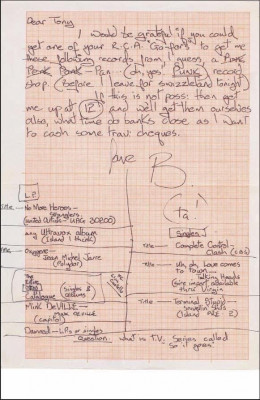 Dear Tony
I would be grateful if you could
get one of your R.C.A. "Go-fors" to get me
those following records from, I guess, a Punk
Pan (oh, yes, PUNK) record
shop. (Before I leave for swizzeland tonight)
If this is not poss. then get
me up at 12 and we'll get them ourselves
also, what time do banks close as I want
to cash some trav. cheques.
love B.
(ta!)
LP
Title — No More Heroes -
Stranglers
United Artists - UAG 30200)
any Ultravox album
(Island I think)
Title — Oxygene -
Jean Michel Jarre
(Polydor)
The
Catalogue
(singles &
albums
Mink DeVILLE —
Mink DEVILLE
(Capitol)
Damned — LPs or singles
Singles
Title — Complete Control -
Clash (CBS)
Title — Uh, oh, Love comes
to Town -
Talking Heads
(Sire import available
thru' Virgin
Title — Terminal
(Island
Question: what is T.V. Series called
so it goes